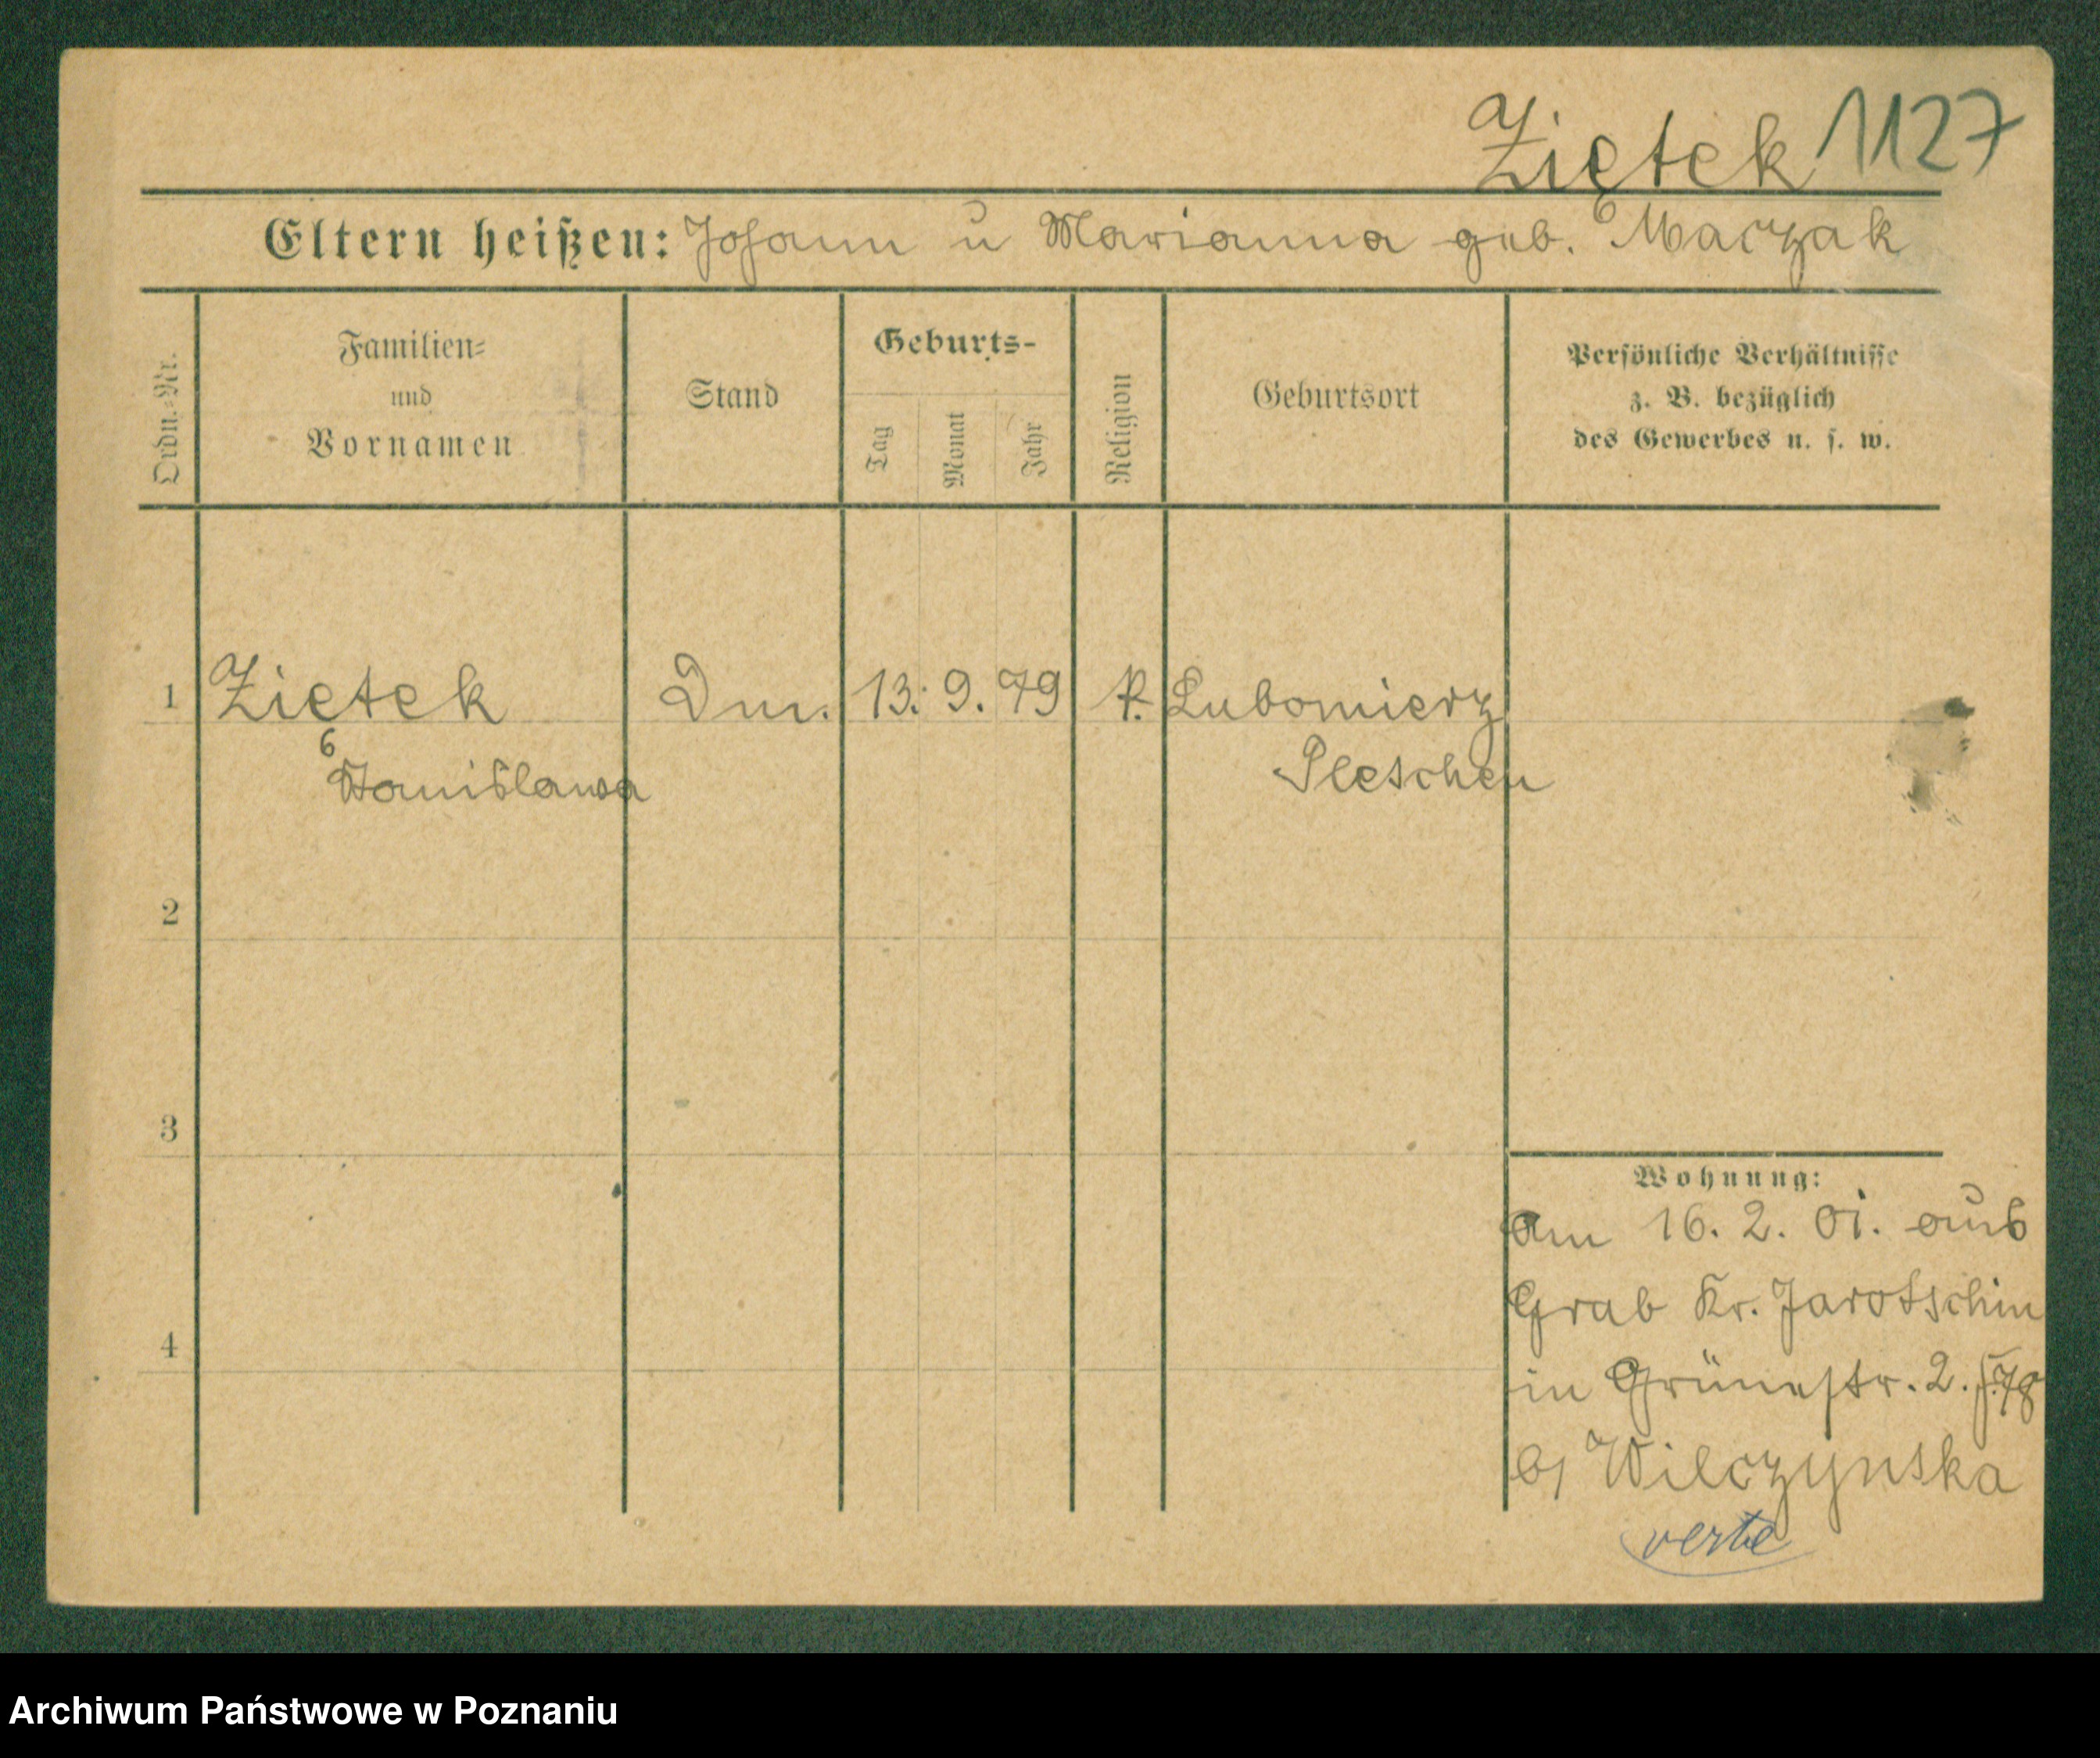 Ziętek 1127
Eltern heißen: Johann u Marianna geb. Maczak
Ordn.-Nr.
Familien-
und
Vornamen
Stand
Geburts-
Tag
Monat
Jahr
Religion
Geburtsort
Persönliche Verhältnisse
z. B. bezüglich
des Gewerbes u. s. w.
1 Ziętek 13. 9. 79 Lubomierz
Stanislawa Pleschen
2
3
4
Wohnung:
am 16. 2. 01. aus
Grab Kr. Jarotschin
in Grünestr. 2.
b/ Wilczynska
verte
Archiwum Państwowe w Poznaniu